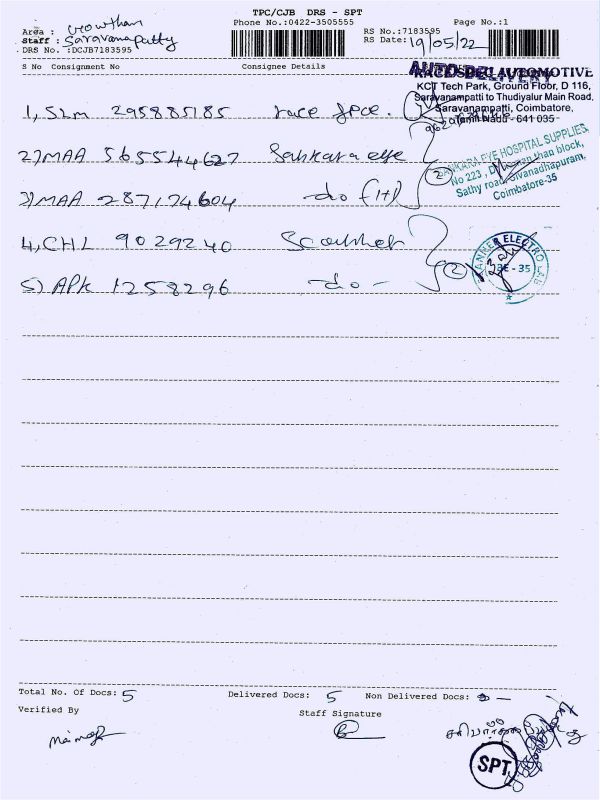 TPC/CJB DRS - SPT
Phone No.:0422-3505555 Page No.:1
Area : Gowtham
Staff : Saravanampatty
DRS No. :DCJB7183595
RS No.:7183595
RS Date: 19/05/22
S No Consignment No Consignee Details
AUTO DELIVERY
RACE SPEC AUTOMOTIVE
KCT Tech Park, Ground Floor, D 116,
Saravanampatti to Thudiyalur Main Road,
Saravanampatti, Coimbatore,
Tamil Nadu - 641 035
1, SLM 295885185 race spce.
2) MAA 565544627 Sankara eye
SANKARA EYE HOSPITAL SUPPLIES,
No 223, block,
Sathy road, Sivanadhapuram,
Coimbatore-35
3) MAA 287174604 -do (HP)
2
4, CHL 9029240 Scanner
2
SCANNER ELECTRO
CBE - 35
5) APK 1258296 -do-
Total No. Of Docs: 5 Delivered Docs: 5 Non Delivered Docs: -
Verified By Staff Signature
SPT